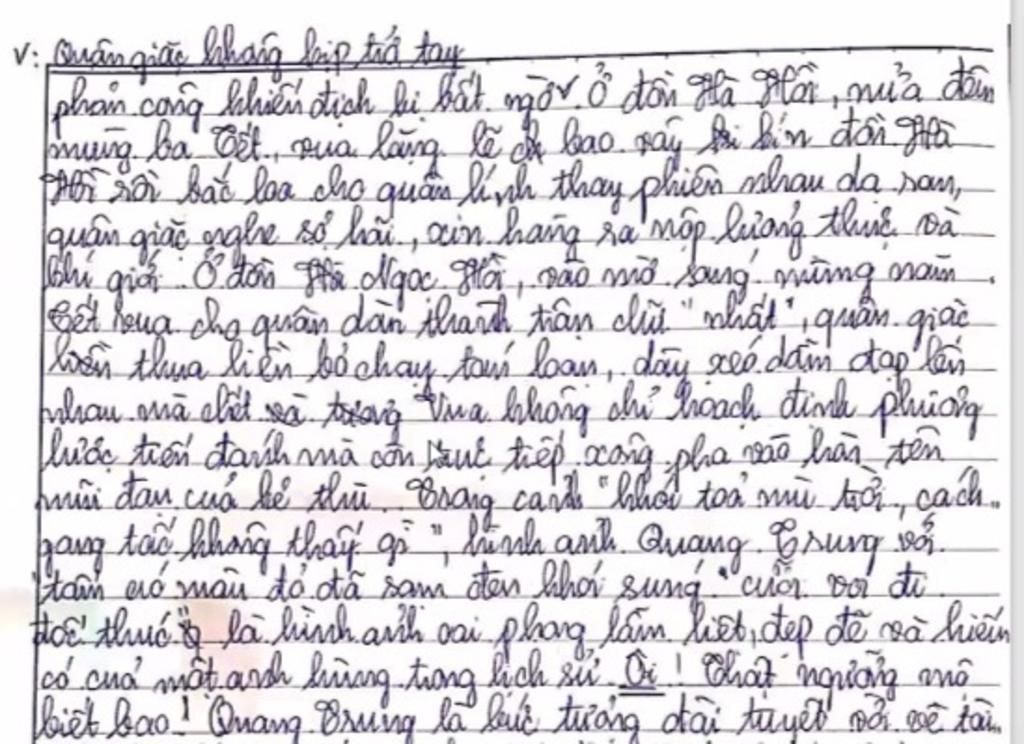 V: Quân giặc không kịp trở tay
phản công khiến địch bị bất ngờ. Ở đồn Hà Hồi, nửa đêm
mùng ba Tết, vua lặng lẽ cho bao vây kín đồn Hà
Hồi rồi bắc loa cho quân lính thay phiên nhau dạ ran,
quân giặc nghe sợ hãi, xin hàng ra nộp lương thực và
khí giới. Ở đồn Hà Ngọc Hồi, vào mờ sáng mùng năm
Tết vua cho quân dàn thành trận chữ "nhất", quân giặc
thua liền bỏ chạy tán loạn, dày xéo dẫm đạp lên
nhau mà chết. Vua không chỉ hoạch định phương
lược tiến đánh mà còn trực tiếp xông pha vào hàn tên
mũi đạn của kẻ thù. Trong cảnh "khói toả mù trời, cách
gang tấc không thấy gì", hình ảnh Quang Trung với
"tấm áo màu đỏ đã sạm đen khói súng" cưỡi voi đi
đốc thúc là hình ảnh oai phong lẫm liệt, đẹp đẽ và hiếm
có của một anh hùng trong lịch sử. Ôi! Thật ngưỡng mộ
biết bao! Quang Trung là bức tượng đài tuyệt vời về tài